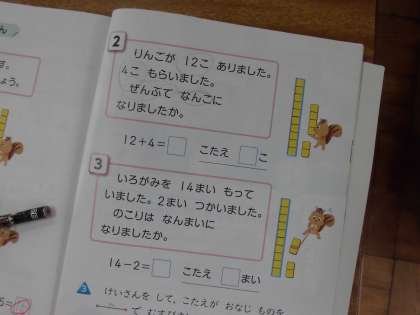 2
りんごが 12こ ありました。
4こ もらいました。
ぜんぶで なんこに
なりましたか。
12+4=□ こたえ □こ
3
いろがみを 14まい もって
いました。2まい つかいました。
のこりは なんまいに
なりましたか。
14-2=□ こたえ □まい
5
けいさんを して、こたえが おなじ ものを